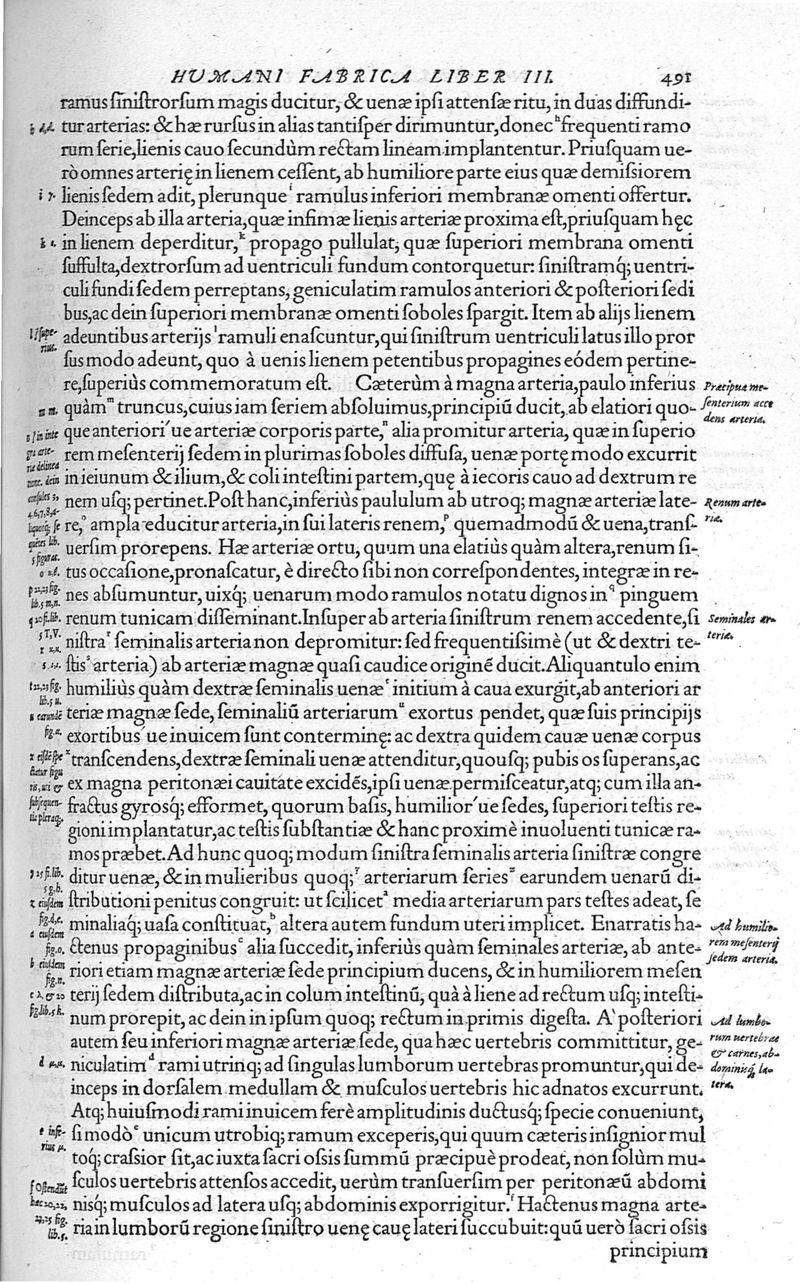 HVMANI FABRICA LIBER III. 491
ramus ſiniſtrorſum magis ducitur, & uenæ ipſi attenſæ ritu, in duas diffundi-
tur arterias: & hæ rurſus in alias tantiſper dirimuntur, donec ʰ frequenti ramo
rum ſerie, lienis cauo ſecundùm rectam lineam implantentur. Priuſquam ue-
rò omnes arterię in lienem ceſſent, ab humiliore parte eius quæ demiſſiorem
lienis ſedem adit, plerunque ⁱ ramulus inferiori membranæ omenti offertur.
Deinceps ab illa arteria, quæ infimæ lienis arteriæ proxima eſt, priuſquam hęc
in lienem deperditur, ᵏ propago pullulat, quæ ſuperiori membrana omenti
ſuffulta, dextrorſum ad uentriculi fundum contorquetur: ſiniſtramq́; uentri-
culi fundi ſedem perreptans, geniculatim ramulos anteriori & poſteriori ſedi
bus, ac dein ſuperiori membranæ omenti ſoboles ſpargit. Item ab alijs lienem
adeuntibus arterijs ˡ ramuli enaſcuntur, qui ſiniſtrum uentriculi latus illo pror
ſus modo adeunt, quo à uenis lienem petentibus propagines eódem pertine-
re, ſuperiùs commemoratum eſt. Cæterùm à magna arteria, paulo inferius
quàm ᵐ truncus, cuius iam ſeriem abſoluimus, principiũ ducit, ab elatiori quo-
que anteriori ́ue arteriæ corporis parte, ⁿ alia promitur arteria, quæ in ſuperio
rem meſenterij ſedem in plurimas ſoboles diffuſa, uenæ portę modo excurrit
in ieiunum & ilium, & coli inteſtini partem, quę à iecoris cauo ad dextrum re
nem uſq; pertinet. Poſt hanc, inferiùs paululum ab utroq; magnæ arteriæ late-
re, ᵒ ampla educitur arteria, in ſui lateris renem, ᵖ quemadmodũ & uena, tranſ-
uerſim prorepens. Hæ arteriæ ortu, quum una elatiùs quàm altera, renum ſi-
tus occaſione, pronaſcatur, è directo ſibi non correſpondentes, integræ in re-
nes abſumuntur, uixq́; uenarum modo ramulos notatu dignos in ᑫ pinguem
renum tunicam diſſeminant. Inſuper ab arteria ſiniſtrum renem accedente, ſi
niſtra ʳ ſeminalis arteria non depromitur: ſed frequentiſsimè (ut & dextri te-
ſtis ˢ arteria) ab arteriæ magnæ quaſi caudice originẽ ducit. Aliquantulo enim
humiliùs quàm dextræ ſeminalis uenæ ᵗ initium à caua exurgit, ab anteriori ar
teriæ magnæ ſede, ſeminaliũ arteriarum ᵘ exortus pendet, quæ ſuis principijs
exortibus ́ue inuicem ſunt conterminę: ac dextra quidem cauæ uenæ corpus
ˣ tranſcendens, dextræ ſeminali uenæ attenditur, quouſq; pubis os ſuperans, ac
ex magna peritonæi cauitate excidẽs, ipſi uenæ permiſceatur, atq; cum illa an-
fractus gyrosq́; efformet, quorum baſis, humilior ́ue ſedes, ſuperiori teſtis re-
gioni implantatur, ac teſtis ſubſtantiæ & hanc proximè inuoluenti tunicæ ra-
mos præbet. Ad hunc quoq; modum ſiniſtra ſeminalis arteria ſiniſtræ congre
ditur uenæ, & in mulieribus quoq; ʸ arteriarum ſeries ᶻ earundem uenarũ di-
ſtributioni penitus congruit: ut ſcilicet ᵃ media arteriarum pars teſtes adeat, ſe
minaliaq́; uaſa conſtituat, ᵇ altera autem fundum uteri implicet. Enarratis ha-
ctenus propaginibus ᶜ alia ſuccedit, inferiùs quàm ſeminales arteriæ, ab ante-
riori etiam magnæ arteriæ ſede principium ducens, & in humiliorem meſen
terij ſedem diſtributa, ac in colum inteſtinũ, quà à liene ad rectum uſq; inteſti-
num prorepit, ac dein in ipſum quoq; rectum in primis digeſta. A ́ poſteriori
autem ſeu inferiori magnæ arteriæ ſede, qua hæc uertebris committitur, ge-
niculatim ᵈ rami utrinq; ad ſingulas lumborum uertebras promuntur, qui de-
inceps in dorſalem medullam & muſculos uertebris hic adnatos excurrunt.
Atq; huiuſmodi rami inuicem ferè amplitudinis ductusq́; ſpecie conueniunt,
ſi modò ᵉ unicum utrobiq; ramum exceperis, qui quum cæteris inſignior mul
toq́; craſsior ſit, ac iuxta ſacri oſsis ſummũ præcipuè prodeat, non ſolùm mu-
ſculos uertebris attenſos accedit, uerùm tranſuerſim per peritonæũ abdomi
nisq́; muſculos ad latera uſq; abdominis exporrigitur. ᶠ Hactenus magna arte-
ria in lumborũ regione ſiniſtro uenę cauę lateri ſuccubuit: quũ uerò ſacri oſsis
principium
Præcipua me-
ſenterium acce
dens arteria.
Renum arte-
riæ.
Seminales ar-
teriæ.
Ad humilio-
rem meſenterij
ſedem arteria.
Ad lumbo-
rum uertebras
& carnes, ab-
dominisq́; la-
tera.
h d,d.
i γ.
k ε.
l ſupe-
rius.
m m.
o n,θ.
p 22,23 fig.
lib.5 m,n.
q 20 fi. lib.
5 T,V.
t 22,23 fig.
lib.5 u.
u earundẽ
fig. a.
y 25 fi. lib.
5 g,h.
z eiuſdem
fig. d,e.
a eiuſdem
fig. o.
b eiuſdem
fig. n.
c λ, & 20
fig. lib. 5 k.
d μ,μ.
e infe-
rius μ.
f Oſtendũt
hæc 20,22,
23,25 fig.
lib.5.